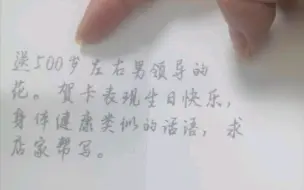 送500岁左右男领导的
花。贺卡表现生日快乐，
身体健康类似的话语，求
店家帮写。